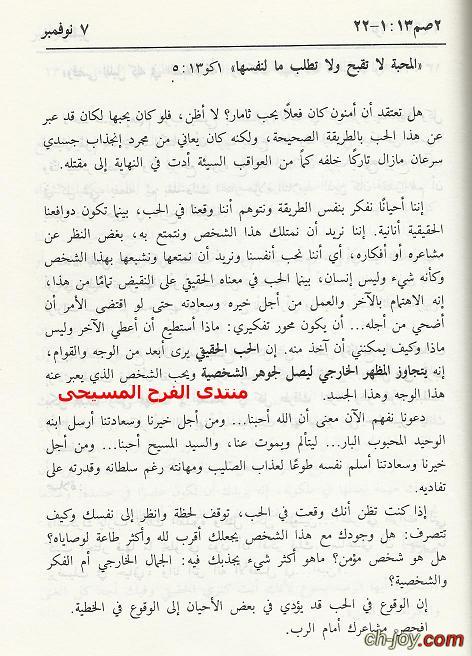 ٢صم١٣:١-٢٢
٧ نوفمبر
«المحبة لا تقبح ولا تطلب ما لنفسها» ١كو١٣:٥
هل تعتقد أن أمنون كان فعلًا يحب ثامار؟ لا أظن، فلو كان يحبها لكان قد عبر
عن هذا الحب بالطريقة الصحيحة، ولكنه كان يعاني من مجرد إنجذاب جسدي
سرعان مازال تاركًا خلفه كمًا من العواقب السيئة أدت في النهاية إلى مقتله.
إننا أحيانًا نفكر بنفس الطريقة ونتوهم أننا وقعنا في الحب، بينما تكون دوافعنا
الحقيقية أنانية. إننا نريد أن نمتلك هذا الشخص ونتمتع به، بغض النظر عن
مشاعره أو أفكاره، أي أننا نحب أنفسنا ونريد أن نمتعها ونشبعها بهذا الشخص
وكأنه شيء وليس إنسان، بينما الحب في معناه الحقيقي على النقيض تمامًا من هذا،
إنه الاهتمام بالآخر والعمل من أجل خيره وسعادته حتى لو اقتضى الأمر أن
أضحي من أجله... أن يكون محور تفكيري: ماذا أستطيع أن أعطي الآخر وليس
ماذا وكيف يمكنني أن آخذ منه. إن الحب الحقيقي يرى أبعد من الوجه والقوام،
إنه يتجاوز المظهر الخارجي ليصل لجوهر الشخصية ويحب الشخص الذي يعبر عنه
هذا الوجه وهذا الجسد.
منتدى الفرح المسيحى
دعونا نفهم الآن معنى أن الله أحبنا... ومن أجل خيرنا وسعادتنا أرسل ابنه
الوحيد المحبوب البار... ليتألم ويموت عنا، والسيد المسيح أحبنا... ومن أجل
خيرنا وسعادتنا أسلم نفسه طوعًا لعذاب الصليب ومهانته رغم سلطانه وقدرته على
تفاديه.
إذا كنت تظن أنك وقعت في الحب، توقف لحظة وانظر إلى نفسك وكيف
تتصرف: هل وجودك مع هذا الشخص يجعلك أقرب لله وأكثر طاعة لوصاياه؟
هل هو شخص مؤمن؟ ماهو أكثر شيء يجذبك فيه: الجمال الخارجي أم الفكر
والشخصية؟
إن الوقوع في الحب قد يؤدي في بعض الأحيان إلى الوقوع في الخطية.
افحص مشاعرك أمام الرب.
ch-joy.com